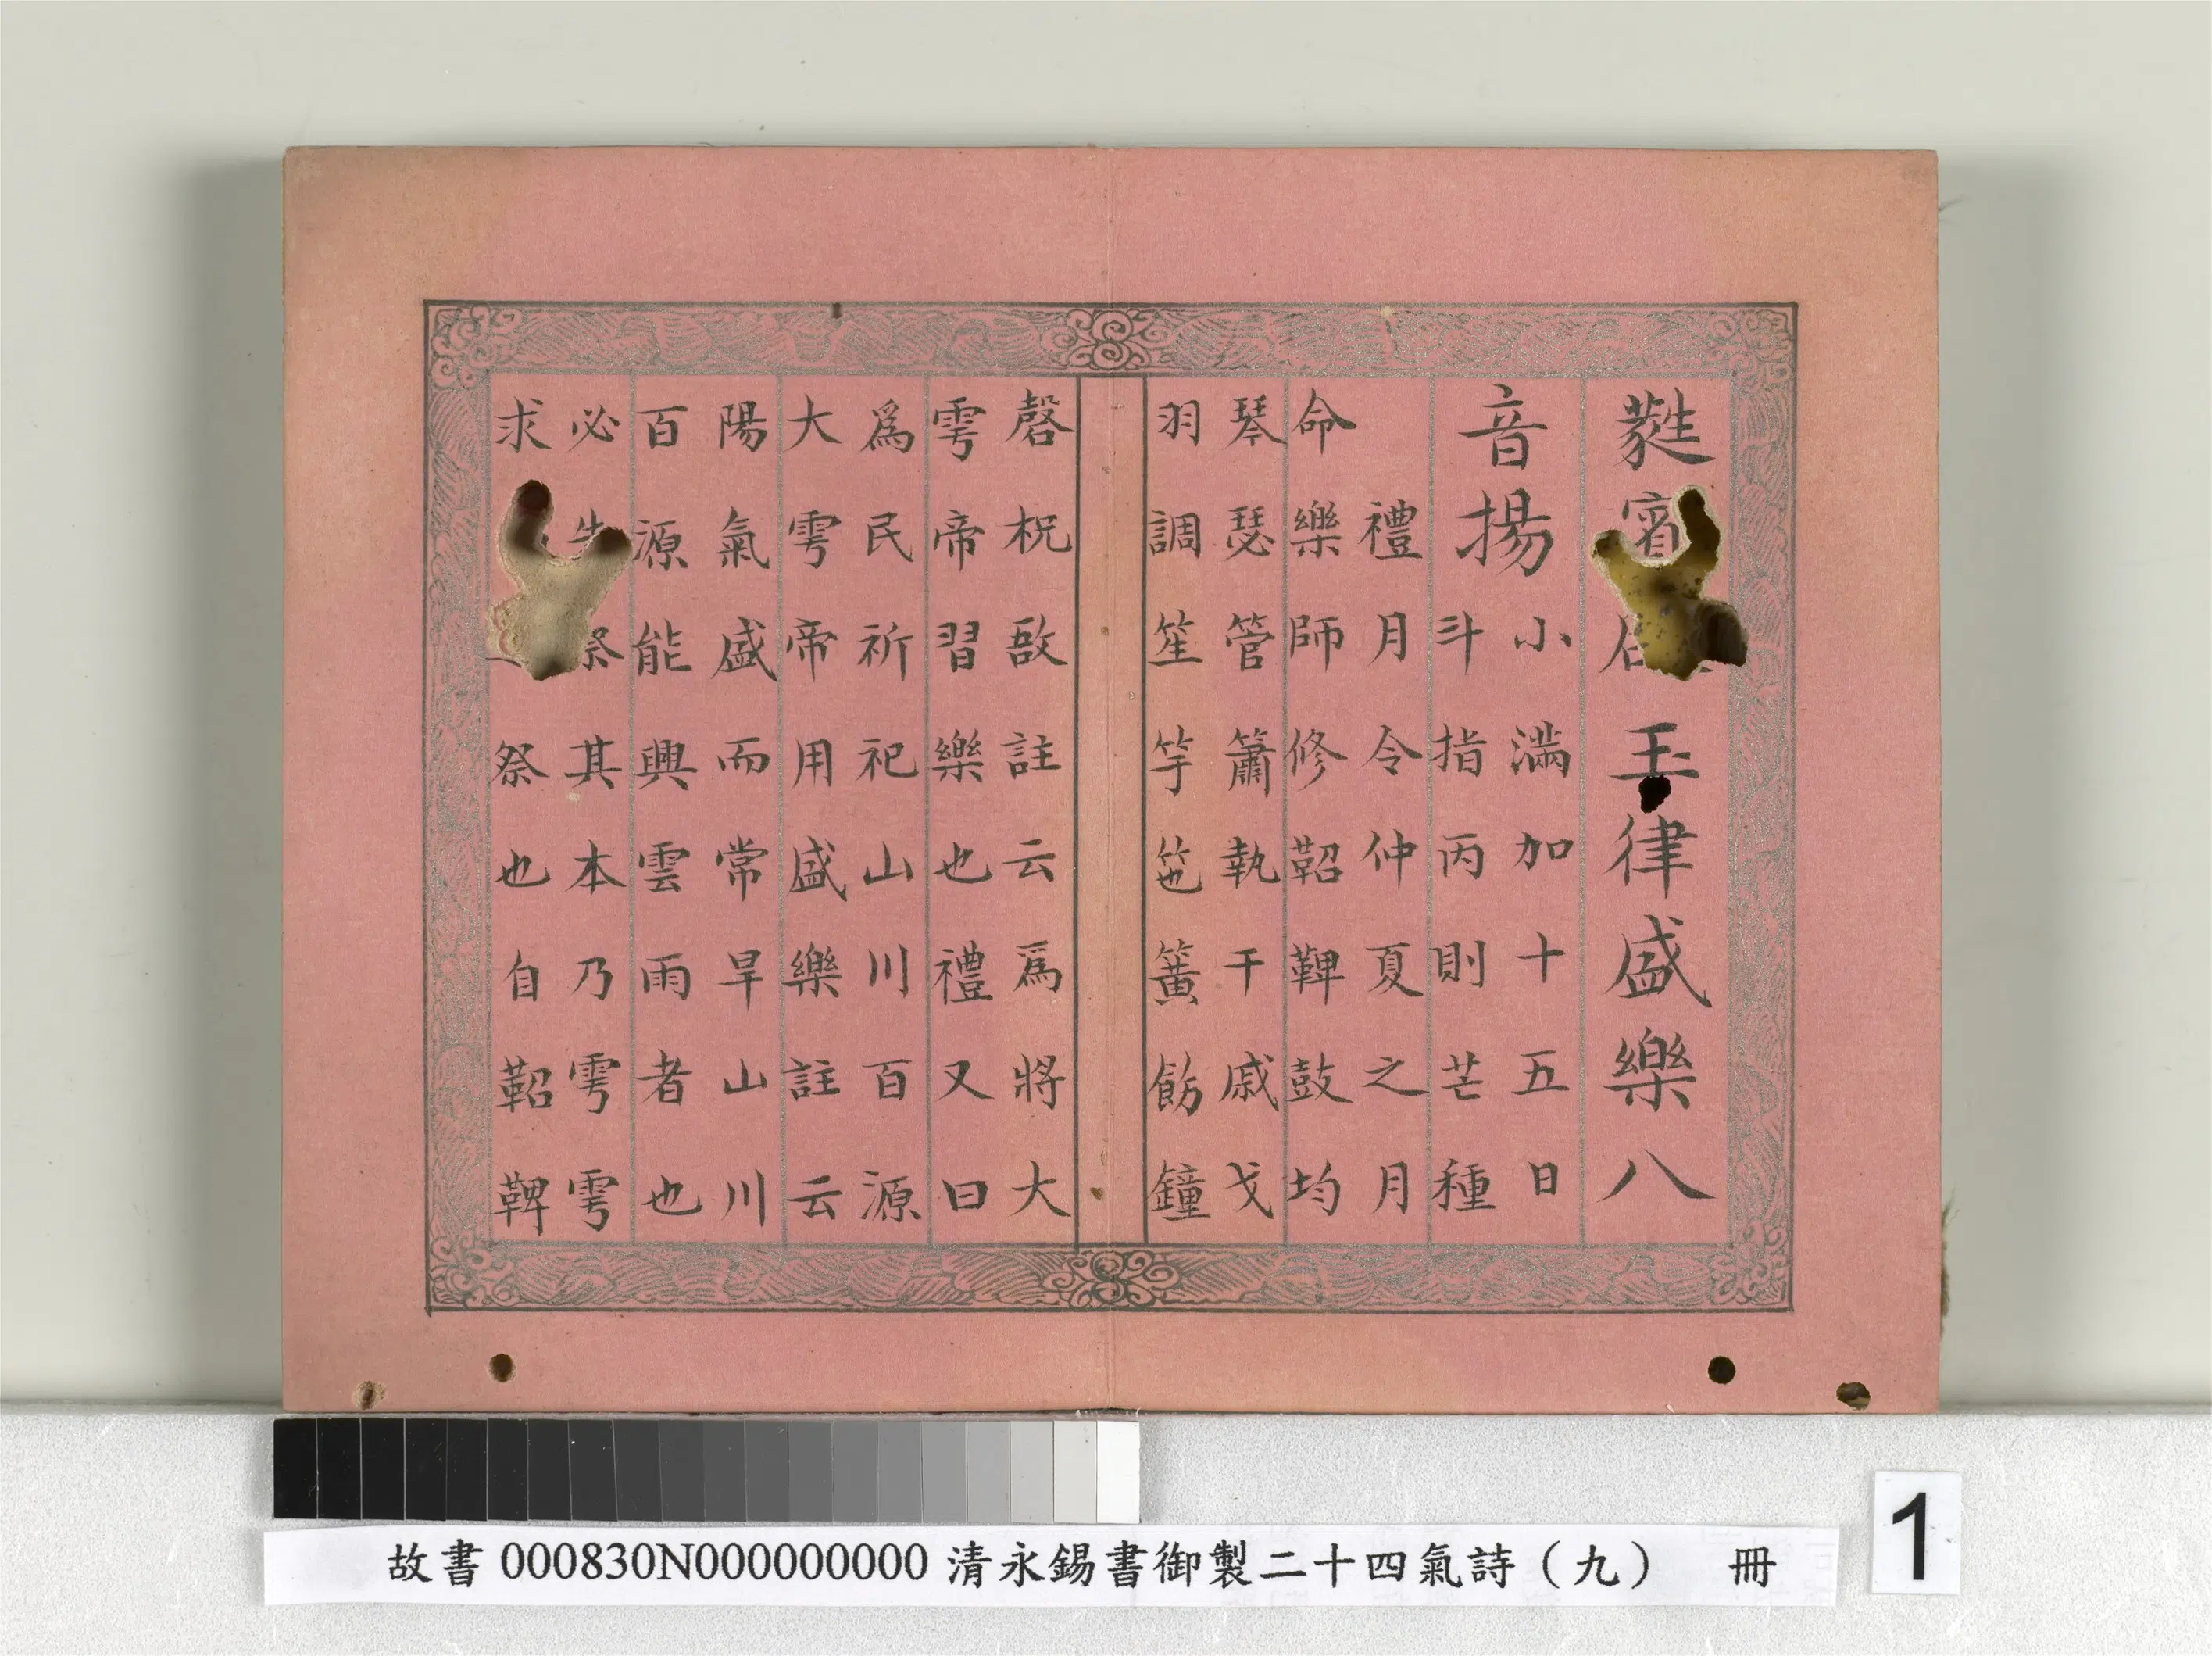 蕤賓玉律盛樂八
音揚
小滿加十五日
斗指丙則芒種
禮月令仲夏之月
命樂師修鞀鞞鼓均
琴瑟管簫執干戚戈
羽調笙竽竾簧飭鐘
磬柷敔註云爲將大
雩帝習樂也禮又曰
爲民祈祀山川百源
大雩帝用盛樂註云
陽氣盛而常旱山川
百源能興雲雨者也
必先祭其本乃雩雩
求祭也自鞀鞞
故書 000830N000000000 清永錫書御製二十四氣詩（九） 冊
1